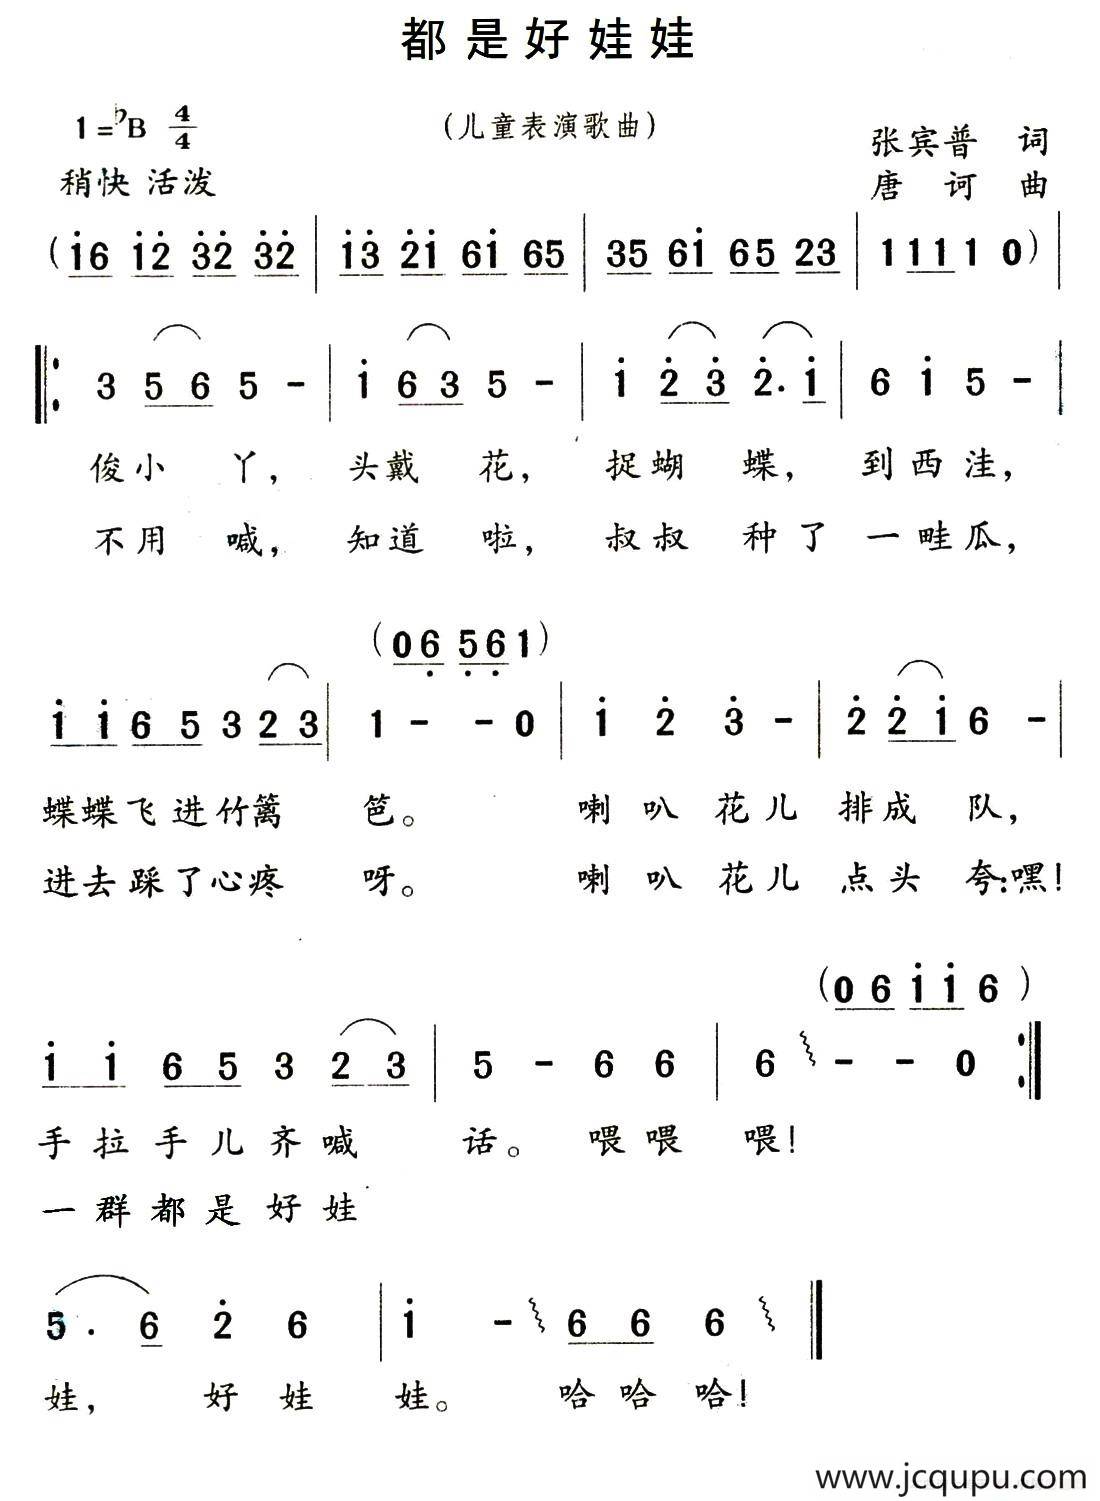 都是好娃娃
1=♭B 4/4
(儿童表演歌曲)
张宾普 词
稍快 活泼
唐诃 曲
(i̇6 i̇2̇ 3̇2̇ 3̇2̇ | i̇3̇ 2̇i̇ 6i̇ 65 | 35 6i̇ 65 23 | 1 11 1 0) |
‖: 3 56 5 - | i̇ 63 5 - | i̇ 2̇3̇ 2̇. i̇ | 6 i̇ 5 - |
俊小 丫, 头戴 花, 捉蝴 蝶, 到西洼,
不用 喊, 知道 啦, 叔叔 种了 一畦瓜,
(06̣ 5̣6̣ 1)
i̇ i̇ 6 5 3 2 3 | 1 - - 0 | i̇ 2̇ 3̇ - | 2̇ 2̇ i̇ 6 - |
蝶蝶飞进竹篱 笆。 喇叭花儿 排成 队,
进去踩了心疼 呀。 喇叭花儿 点头 夸:嘿!
(06 i̇ i̇ 6)
i̇ i̇ 6 5 3 2 3 | 5 - 6 6 | 6 - - 0 :‖
手拉手儿齐喊 话。 喂喂 喂!
一群都是好娃
5. 6 2̇ 6 | i̇ - 6 6 6 ‖
娃, 好娃 娃。 哈哈哈!
www.jcqupu.com